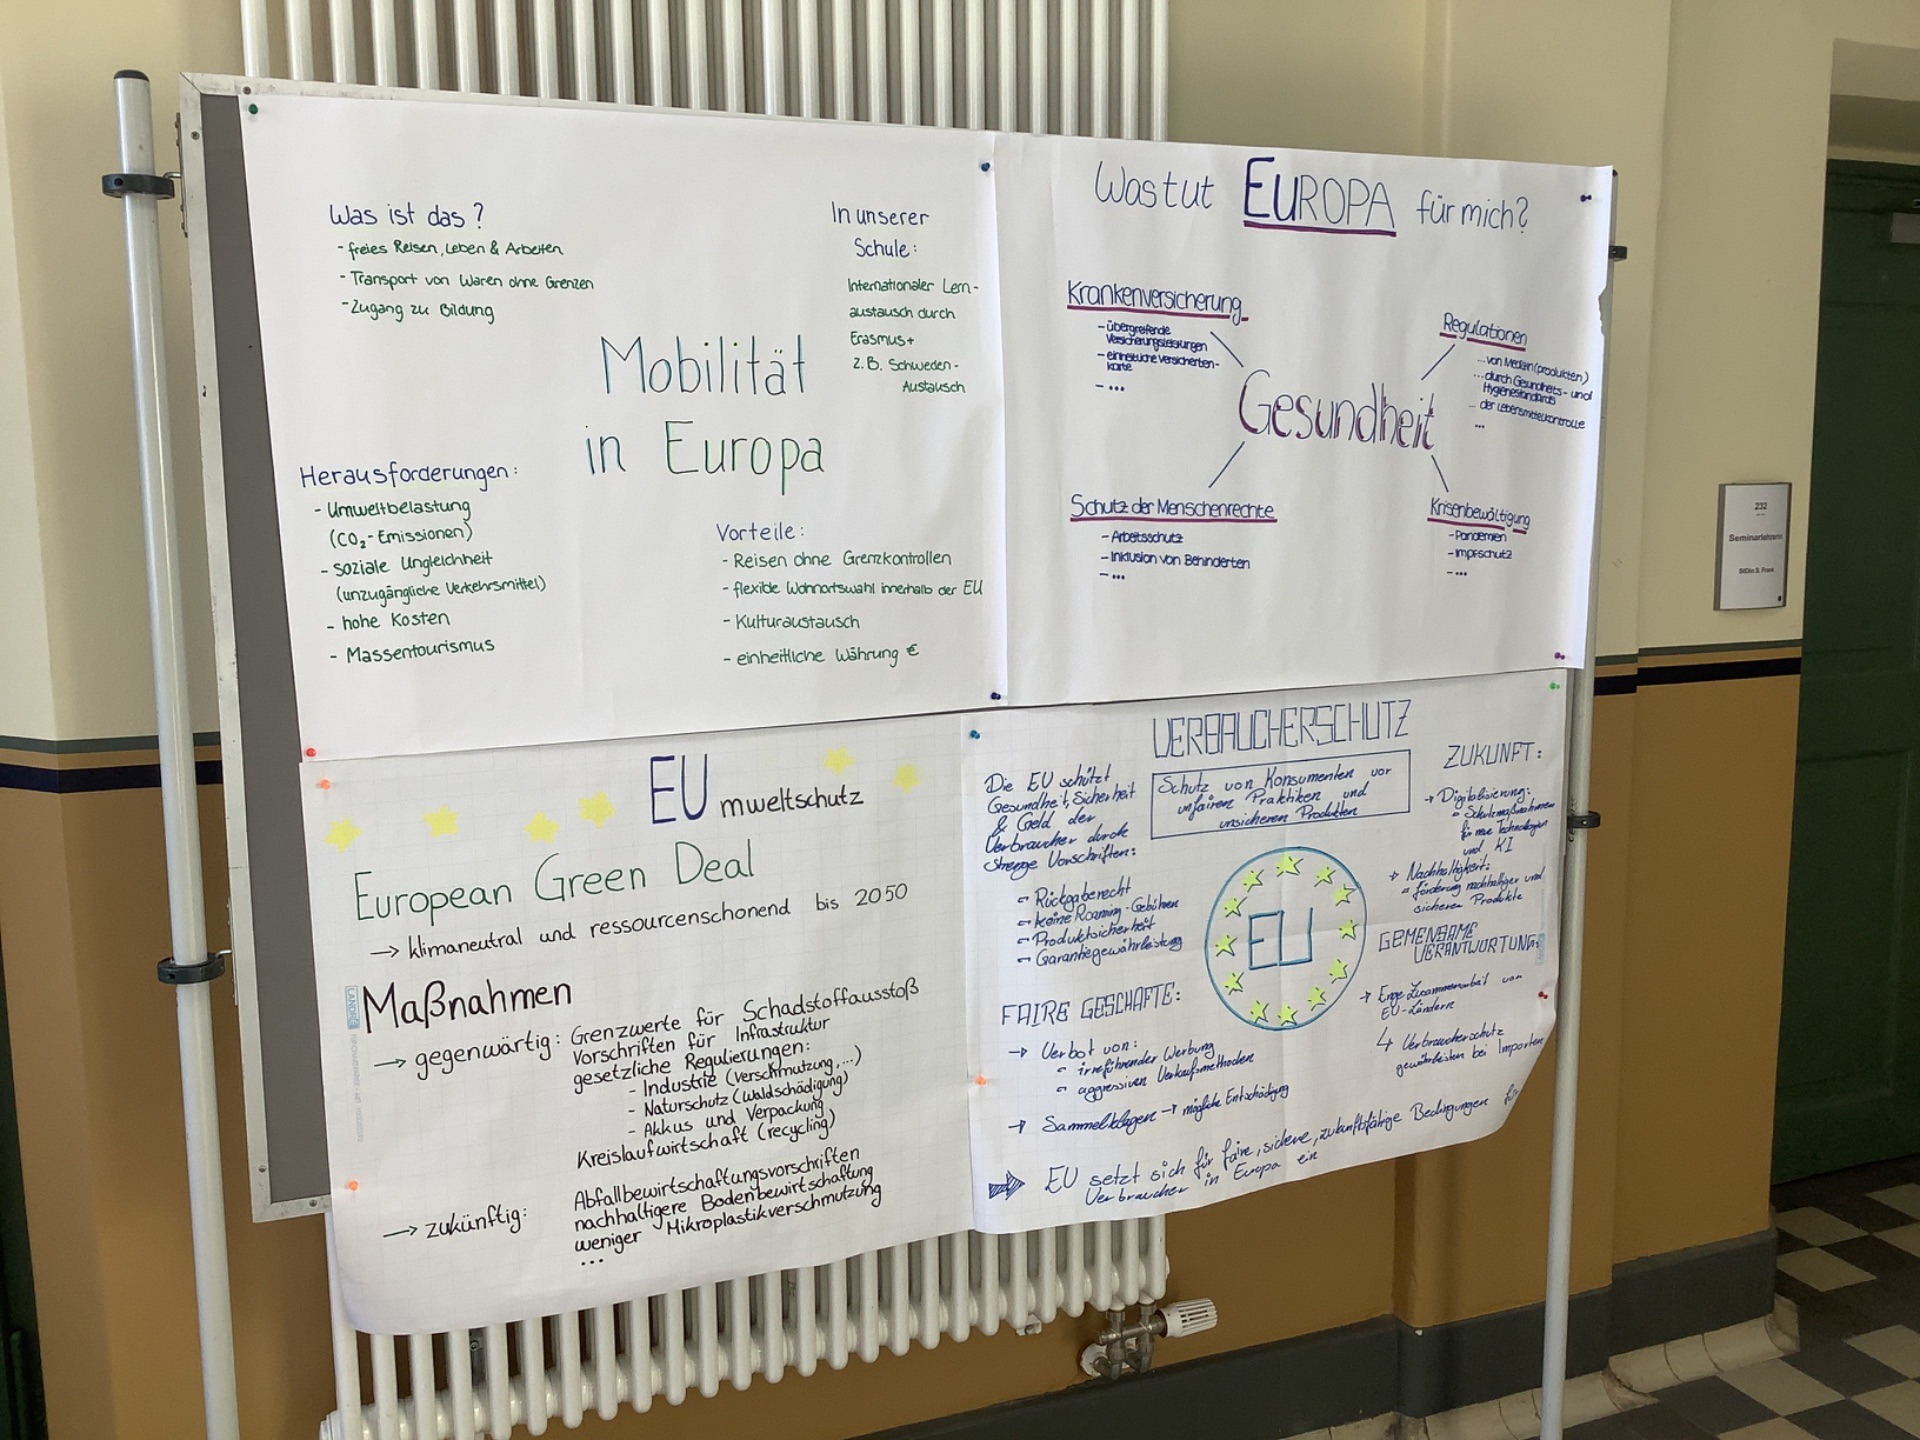 Was ist das?
- freies Reisen, Leben & Arbeiten
- Transport von Waren ohne Grenzen
- Zugang zu Bildung
In unserer
Schule:
Internationaler Lern-
austausch durch
Erasmus+
z.B. Schweden-
Austausch
Mobilität
in Europa
Herausforderungen:
- Umweltbelastung
(CO₂-Emissionen)
- soziale Ungleichheit
(unzugängliche Verkehrsmittel)
- hohe Kosten
- Massentourismus
Vorteile:
- Reisen ohne Grenzkontrollen
- flexible Wohnortswahl innerhalb der EU
- Kulturaustausch
- einheitliche Währung €
Was tut EUROPA für mich?
Krankenversicherung
- übergreifende
Versicherungsleistungen
- einheitliche Versicherten-
karte
- ...
Regulationen
... von Medizin(produkten)
... durch Gesundheits- und
Hygienestandards
... der Lebensmittelkontrolle
...
Gesundheit
Schutz der Menschenrechte
- Arbeitsschutz
- Inklusion von Behinderten
- ...
Krisenbewältigung
- Pandemien
- Impfschutz
- ...
EUmweltschutz
European Green Deal
→ klimaneutral und ressourcenschonend bis 2050
Maßnahmen
→ gegenwärtig: Grenzwerte für Schadstoffausstoß
Vorschriften für Infrastruktur
gesetzliche Regulierungen:
- Industrie (Verschmutzung, ...)
- Naturschutz (Waldschädigung)
- Akkus und Verpackung
Kreislaufwirtschaft (recycling)
→ zukünftig: Abfallbewirtschaftungsvorschriften
nachhaltigere Bodenbewirtschaftung
weniger Mikroplastikverschmutzung
...
LANDRÉ
VERBAUCHERSCHUTZ
Schutz von Konsumenten vor
unfairen Praktiken und
unsicheren Produkten
Die EU schützt
Gesundheit, Sicherheit
& Geld der
Verbraucher durch
strenge Vorschriften:
- Rückgaberecht
- keine Roaming-Gebühren
- Produktsicherheit
- Garantiegewährleistung
EU
FAIRE GESCHÄFTE:
→ Verbot von:
- irreführender Werbung
- aggressiven Verkaufsmethoden
→ Sammelklagen → mögliche Entschädigung
ZUKUNFT:
→ Digitalisierung:
- Schutzmaßnahmen
für neue Technologien
und KI
→ Nachhaltigkeit:
- förderung nachhaltiger und
sicheren Produkte
GEMEINSAME
VERANTWORTUNG:
→ Enge Zusammenarbeit von
EU-Ländern
↳ Verbraucherschutz
gewährleisten bei Importen
⇒ EU setzt sich für faire, sichere, zukunftsfähige Bedingungen für
Verbraucher in Europa ein
232
Seminarlehrerin
StDin S. Frank